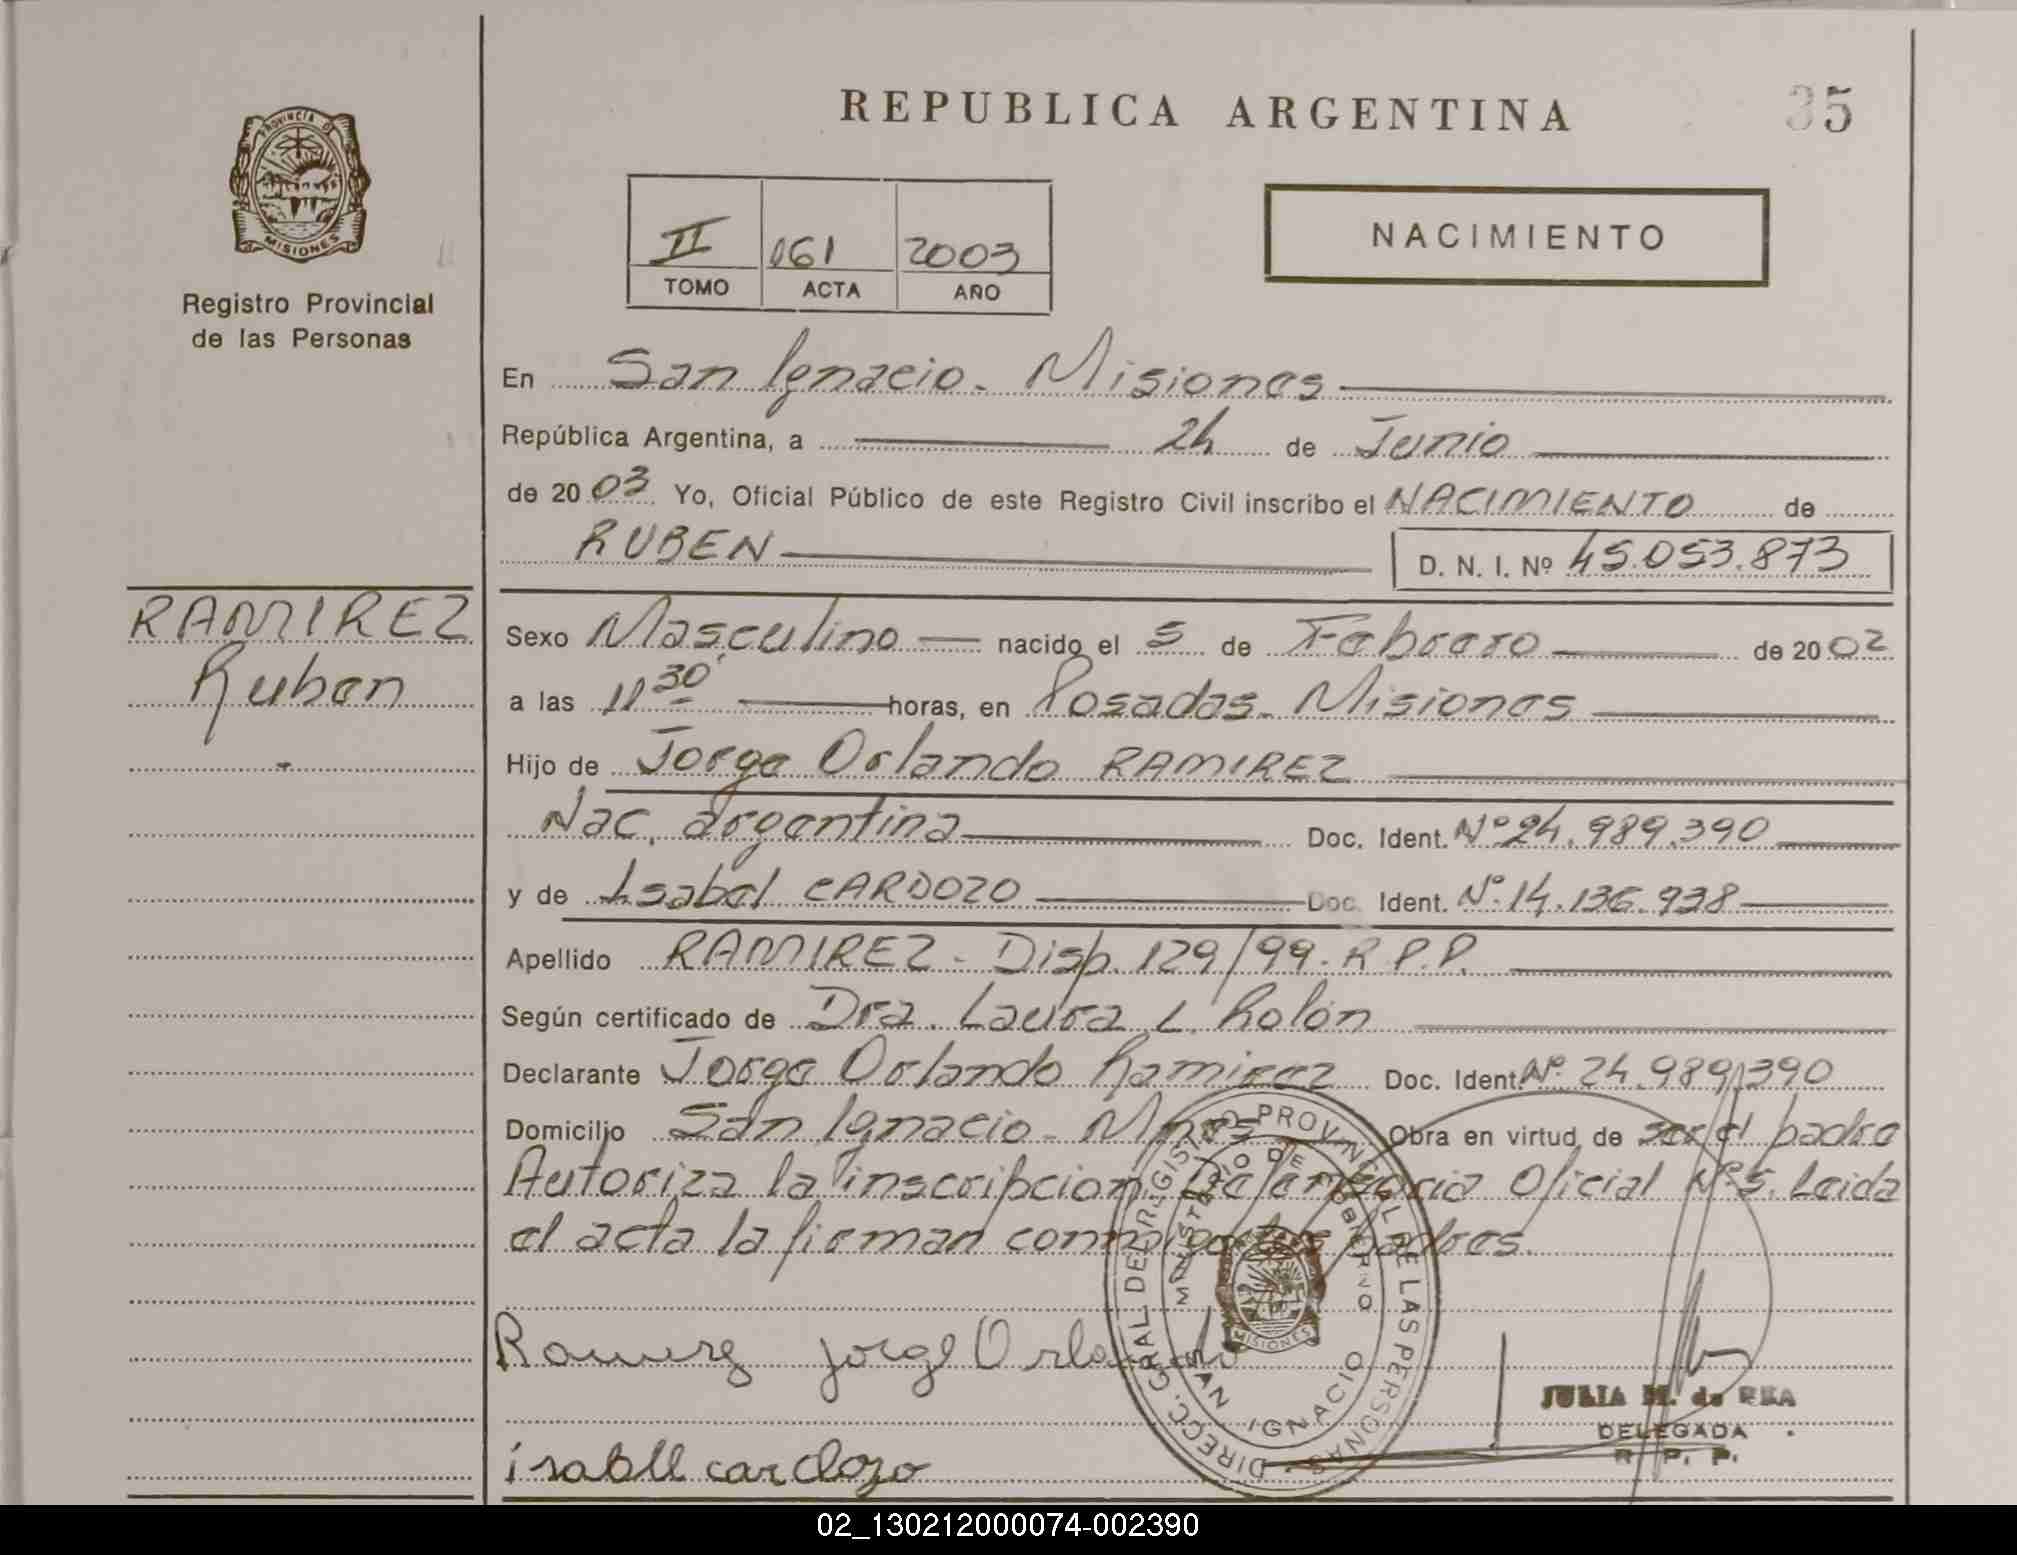 REPUBLICA ARGENTINA
35
PROVINCIA DE
MISIONES
Registro Provincial
de las Personas
NACIMIENTO
II 061 2003
TOMO ACTA AÑO
En San Ignacio - Misiones
República Argentina, a 24 de Junio
de 2003 Yo, Oficial Público de este Registro Civil inscribo el NACIMIENTO de
RUBEN D. N. I. Nº 45.053.873
RAMIREZ
Ruben
Sexo Masculino nacido el 5 de Febrero de 2002
a las 11 30' horas, en Posadas - Misiones
Hijo de Jorge Orlando RAMIREZ
Nac. argentina Doc. Ident. Nº 24.989.390
y de Isabel CARDOZO Doc. Ident. Nº 14.136.938
Apellido RAMIREZ - Disp. 129/99 - R.P.P.
Según certificado de Dra. Laura L. Rolón
Declarante Jorge Orlando Ramirez Doc. Ident. Nº 24.989.390
Domicilio San Ignacio - Mnes Obra en virtud de ser el padre
Autoriza la inscripcion Oficial Nº 5. Leida
el acta la firman conmigo los padres.
Ramirez Jorge Orlando
isabell cardozo
DIRECC. GRAL DEL REGISTRO PROVINCIAL DE LAS PERSONAS
MINISTERIO DE GOBIERNO
MISIONES
SAN IGNACIO
JULIA M. de REA
DELEGADA
R. P. P.
02_130212000074-002390